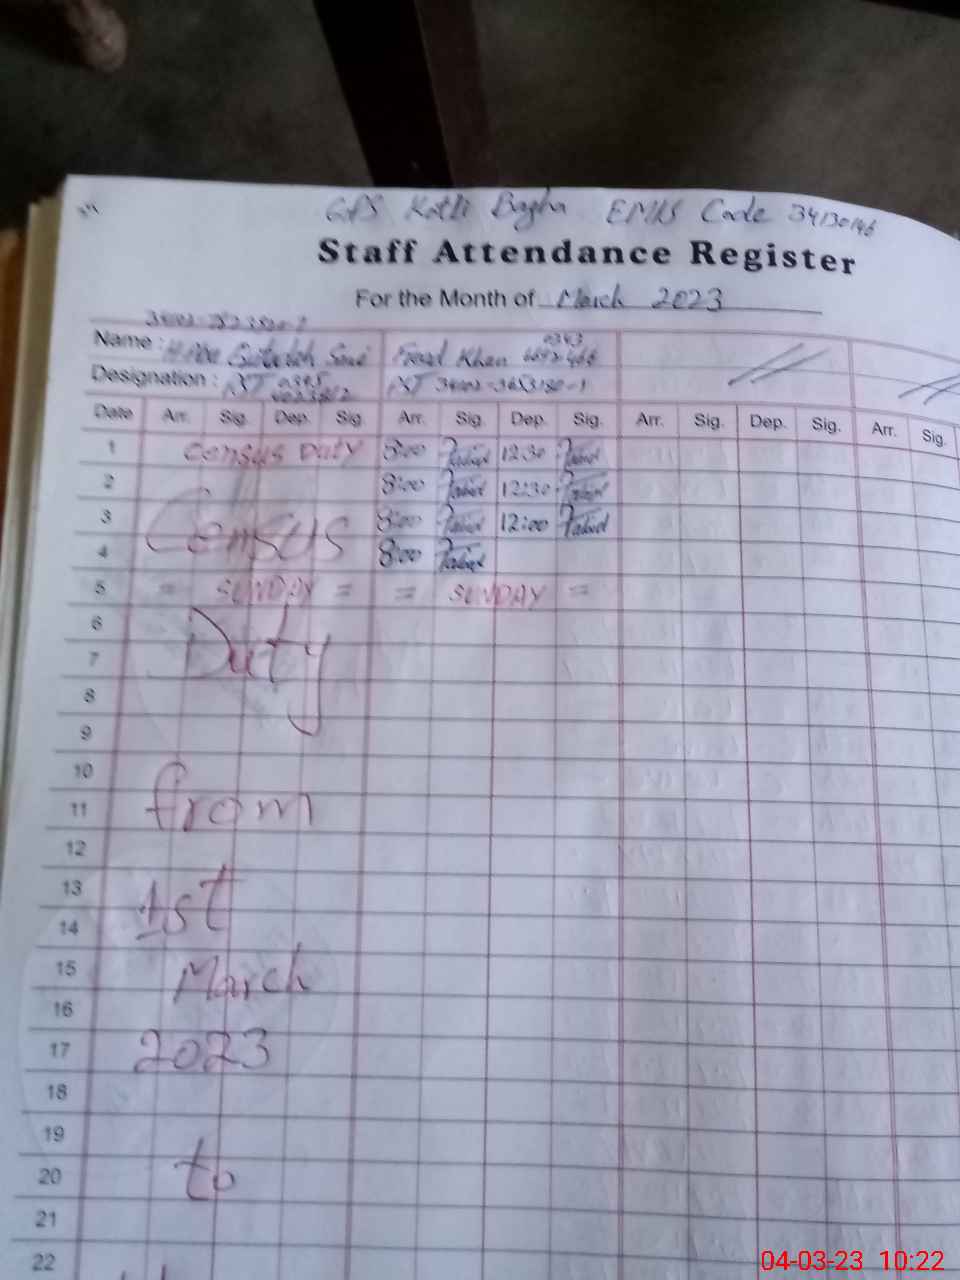 GPS Kotli Bagha EMIS Code 34130146
Staff Attendance Register
For the Month of March 2023
Name : Khan 0343
Designation : PST 0345 PST 34102-3653180-1
Date Arr. Sig. Dep. Sig. Arr. Sig. Dep. Sig. Arr. Sig. Dep. Sig. Arr. Sig.
1 Census Duty 8:00 12:30
2 8:00 12:30
3 Census 8:00 12:00
4 8:00
5 = SUNDAY = = SUNDAY =
6
Duty
7
8
9
10
from
11
12
13
1st
14
15
March
16
17 2023
18
19
20 to
21
22
04-03-23 10:22